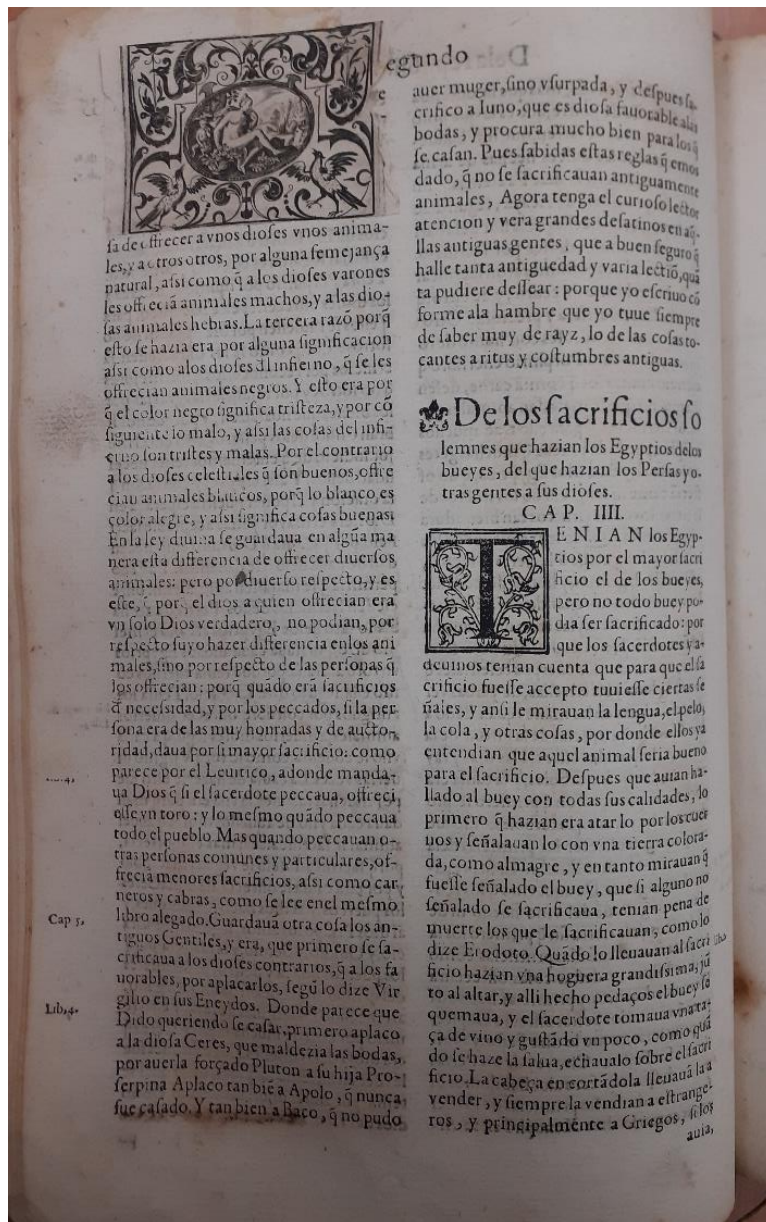 egundo
e
-
sa de offrecer a vnos dioses vnos anima-
les, y a otros otros, por alguna semejança
natural, assi como q̃ a los dioses varones
les offreciã animales machos, y a las dio-
sas animales hebras. La tercera razõ porq̃
esto se hazia era por alguna significacion
assi como alos dioses dl infierno, q̃ se les
offrecian animales negros. Y esto era por
q̃ el color negro significa tristeza, y por cõ
siguiente lo malo, y assi las cosas del infi-
erno son tristes y malas. Por el contrario
a los dioses celestiales q̃ son buenos, offre
cian animales blancos, porq̃ lo blanco, es
color alegre, y assi significa cosas buenas:
En la ley diuina se guardaua en algũa ma
nera esta differencia de offrecer diuersos
animales: pero por diuerso respecto, y es
este, q̃ porq̃ el dios a quien offrecian era
vn solo Dios verdadero, no podian, por
respecto suyo hazer differencia enlos ani
males, sino por respecto de las personas q̃
los offrecian: porq̃ quãdo erã sacrificios
d̃ necessidad, y por los peccados, si la per
sona era de las muy honradas y de aucto-
ridad, daua por si mayor sacrificio: como
parece por el Leuitico, adonde manda-
ua Dios q̃ si el sacerdote peccaua, offreci
esse vn toro: y lo mesmo quãdo peccaua
todo el pueblo. Mas quando peccauan o-
tras personas comunes y particulares, of-
frecia menores sacrificios, assi como car
neros y cabras, como se lee enel mesmo
libro alegado. Guardauã otra cosa los an-
tiguos Gentiles, y era, que primero se sa-
crificaua a los dioses contrarios, q̃ a los fa
uorables, por aplacarlos, segũ lo dize Vir
gilio en sus Eneydos. Donde parece que
Dido queriendo se casar, primero aplaco
a la diosa Ceres, que maldezia las bodas,
por auerla forçado Pluton a su hija Pro-
serpina Aplaco tan biẽ a Apolo, q̃ nunca
fue casado. Y tan bien a Baco, q̃ no pudo
4,
Cap 5,
Lib,4.
auer muger, sino vsurpada, y despues sa-
crifico a Iuno, que es diosa fauorable alas
bodas, y procura mucho bien para los q̃
se casan. Pues sabidas estas reglas q̃ emos
dado, q̃ no se sacrificauan antiguamente
animales, Agora tenga el curioso lector
atencion y vera grandes desatinos en aq̃-
llas antiguas gentes, que a buen seguro q̃
halle tanta antiguedad y varia lectiõ, quã
ta pudiere dessear: porque yo escriuo cõ
forme ala hambre que yo tuue siempre
de saber muy de rayz, lo de las cosas to-
cantes a ritus y costumbres antiguas.
De los sacrificios so
lemnes que hazian los Egyptios delos
bueyes, del que hazian los Persas y o-
tras gentes a sus dioses.
CAP. IIII.
TENIAN los Egyp-
tios por el mayor sacri
ficio el de los bueyes,
pero no todo buey po-
dia ser sacrificado: por
que los sacerdotes y a-
deuinos tenian cuenta que para que el sa
crificio fuesse accepto tuuiesse ciertas se
ñales, y ansi le mirauan la lengua, el pelo,
la cola, y otras cosas, por donde ellos ya
entendian que aquel animal seria bueno
para el sacrificio. Despues que auian ha-
llado al buey con todas sus calidades, lo
primero q̃ hazian era atar lo por los cuer
nos y señalauan lo con vna tierra colora-
da, como almagre, y en tanto mirauan q̃
fuesse señalado el buey, que si alguno no
señalado se sacrificaua, tenian pena de
muerte los que le sacrificauan, como lo
dize Erodoto. Quãdo lo lleuauan al sacri
ficio hazian vna hoguera grandissima, jũ
to al altar, y alli hecho pedaços el buey se
quemaua, y el sacerdote tomaua vna ta-
ça de vino y gustãdo vn poco, como quã
do se haze la salua, echaualo sobre el sacri
ficio. La cabeça en cortãdola lleuauã la a
vender, y siempre la vendian a estrange-
ros, y principalmẽte a Griegos, si los
auia,